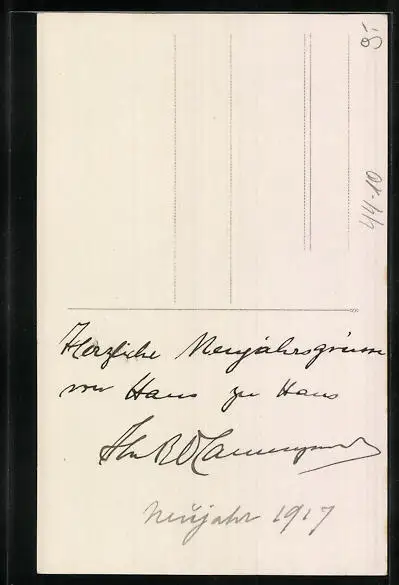 Herzliche Neujahrsgrüsse
von Haus zu Haus
Ihr
Neujahr 1917
44-10